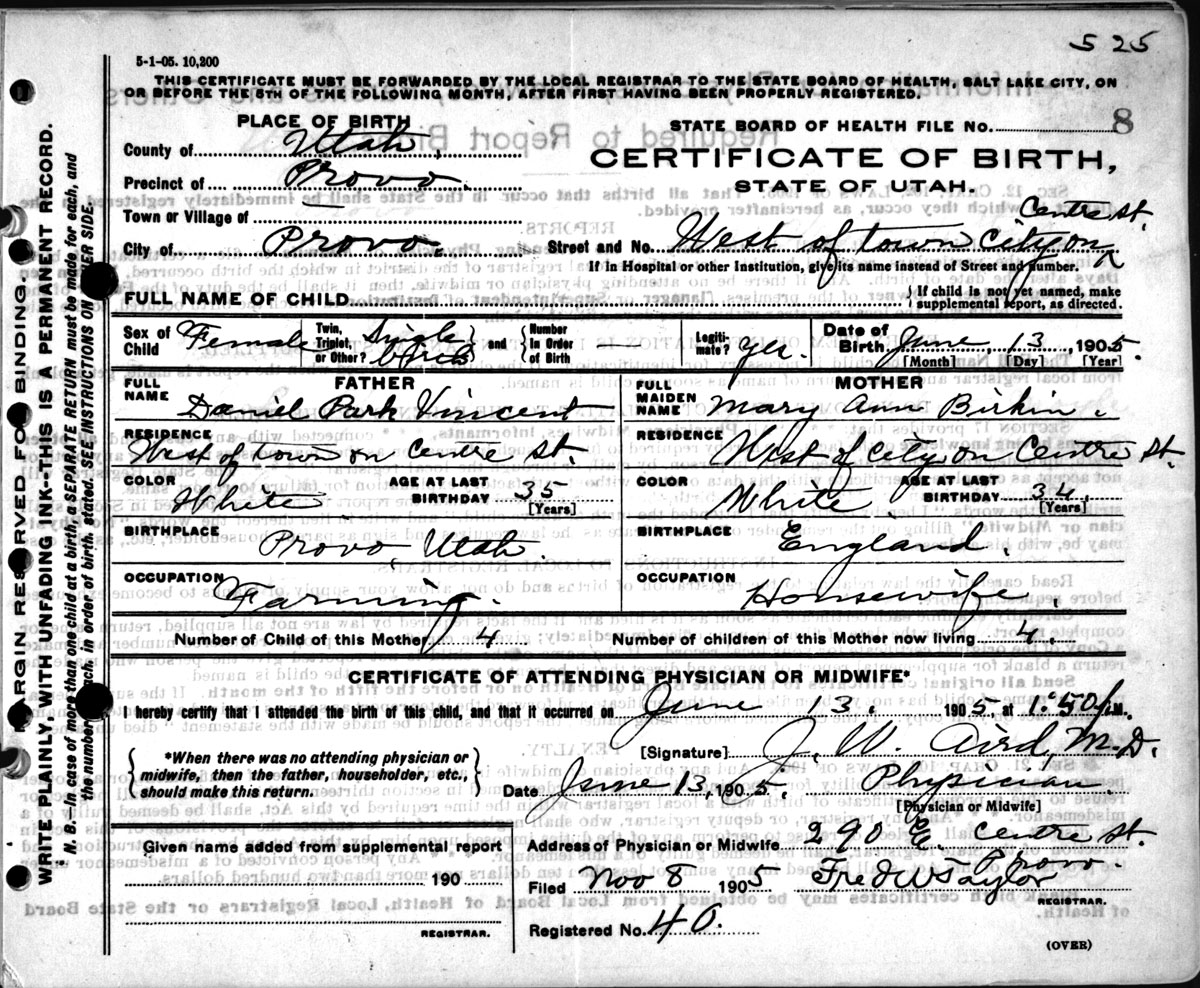 525
5-1-05. 10,200
THIS CERTIFICATE MUST BE FORWARDED BY THE LOCAL REGISTRAR TO THE STATE BOARD OF HEALTH, SALT LAKE CITY, ON
OR BEFORE THE 5TH OF THE FOLLOWING MONTH, AFTER FIRST HAVING BEEN PROPERLY REGISTERED.
PLACE OF BIRTH
County of Utah.
Precinct of Provo.
Town or Village of
City of Provo.
STATE BOARD OF HEALTH FILE No. 8
CERTIFICATE OF BIRTH,
STATE OF UTAH.
Centre st.
Street and No. West of town City on
If in Hospital or other Institution, give its name instead of Street and number.
FULL NAME OF CHILD
{If child is not yet named, make
supplemental report, as directed.
Sex of Child Female
Twin, Triplet, or Other? Single birth } and { Number in Order of Birth
Legitimate? Yes.
Date of Birth June, 13, 1905.
[Month] [Day] [Year]
FATHER
FULL NAME Daniel Park Vincent
RESIDENCE West of town on Centre st.
COLOR White AGE AT LAST BIRTHDAY 35
[Years]
BIRTHPLACE Provo Utah.
OCCUPATION Farming.
MOTHER
FULL MAIDEN NAME Mary Ann Birkin.
RESIDENCE West of City on Centre st.
COLOR White. AGE AT LAST BIRTHDAY 34
[Years]
BIRTHPLACE England.
OCCUPATION Housewife.
Number of Child of this Mother 4 Number of children of this Mother now living 4.
CERTIFICATE OF ATTENDING PHYSICIAN OR MIDWIFE*
I hereby certify that I attended the birth of this child, and that it occurred on June 13. 1905, at 1:50 P.M.
{*When there was no attending physician or
midwife, then the father, householder, etc.,
should make this return.}
[Signature] J. W. Aird, M.D.
Date June 13, 1905. Physician.
[Physician or Midwife]
Address of Physician or Midwife 290 E. Centre st.
Provo.
Given name added from supplemental report
190
REGISTRAR.
Filed Nov 8 1905 Fred W Taylor
REGISTRAR.
Registered No. 40.
(OVER)
MARGIN RESERVED FOR BINDING.
WRITE PLAINLY, WITH UNFADING INK--THIS IS A PERMANENT RECORD.
N. B. In case of more than one child at a birth, a SEPARATE RETURN must be made for each, and
the number of each, in order of birth, stated. SEE INSTRUCTIONS ON OTHER SIDE.